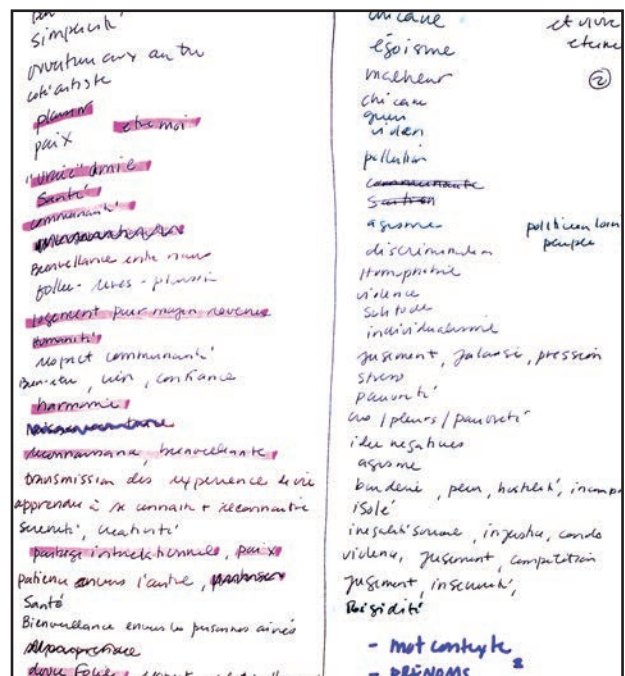 simplicité
ouverture aux autres
côté artiste
plaisir
paix être moi
"vraie" amie
Santé
communauté
Bienveillance entre nous
folles - rires - plaisir
Logement pour moyen revenus
Humanité
respect communauté
Bien-être, , confiance
harmonie
reconnaissance, bienveillante
transmission des expérience de vie
apprendre à se connaître + reconnaître
sérénité, créativité
partage intergénérationnel, paix
patience envers l'autre,
Santé
Bienveillance envers les personnes ainés
doux Foyer
chicane
égoïsme
malheur
chicane
pollution
communauté
agisme
discrimination
Homophobie
violence
Solitude
individualisme
jugement, jalousie, pression
stress
pauvreté
cris / pleurs / pauvreté
idée négatives
agisme
, peur, hostilité,
isolé
inégalité sociale, injustice, condo
violence, jugement, compétition
jugement, insécurité,
Rigidité
- mot contexte
- PRÉNOMS
et vivre
2
politicien loin
peuple